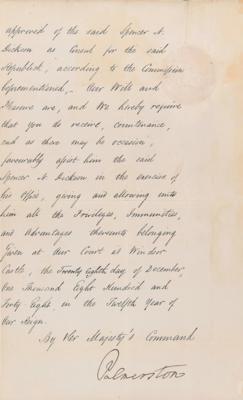 approved of the said Spencer A.
Dickson as Consul for the said
Republick, according to the Commission
beforementioned,- Our Will and
Pleasure are, and We hereby require
that you do receive, countenance,
and as there may be occasion,
favourably assist him the said
Spencer A. Dickson in the exercise of
his Office, giving and allowing unto
him all the Privileges, Immunities,
and Advantages thereunto belonging
Given at Our Court at Windsor
Castle, the Twenty Eighth day of December,
One Thousand Eight Hundred and
Forty Eight, in the Twelfth Year of
Our Reign.
By Her Majesty's Command
Palmerston